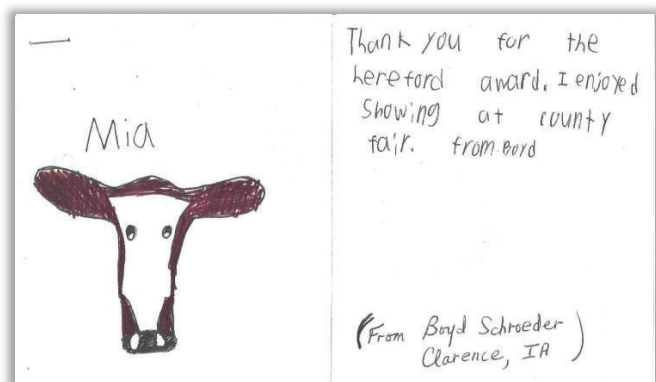 Mia
Thank you for the
hereford award. I enjoyed
Showing at county
fair. from Boyd
(From Boyd Schroeder
Clarence, IA)